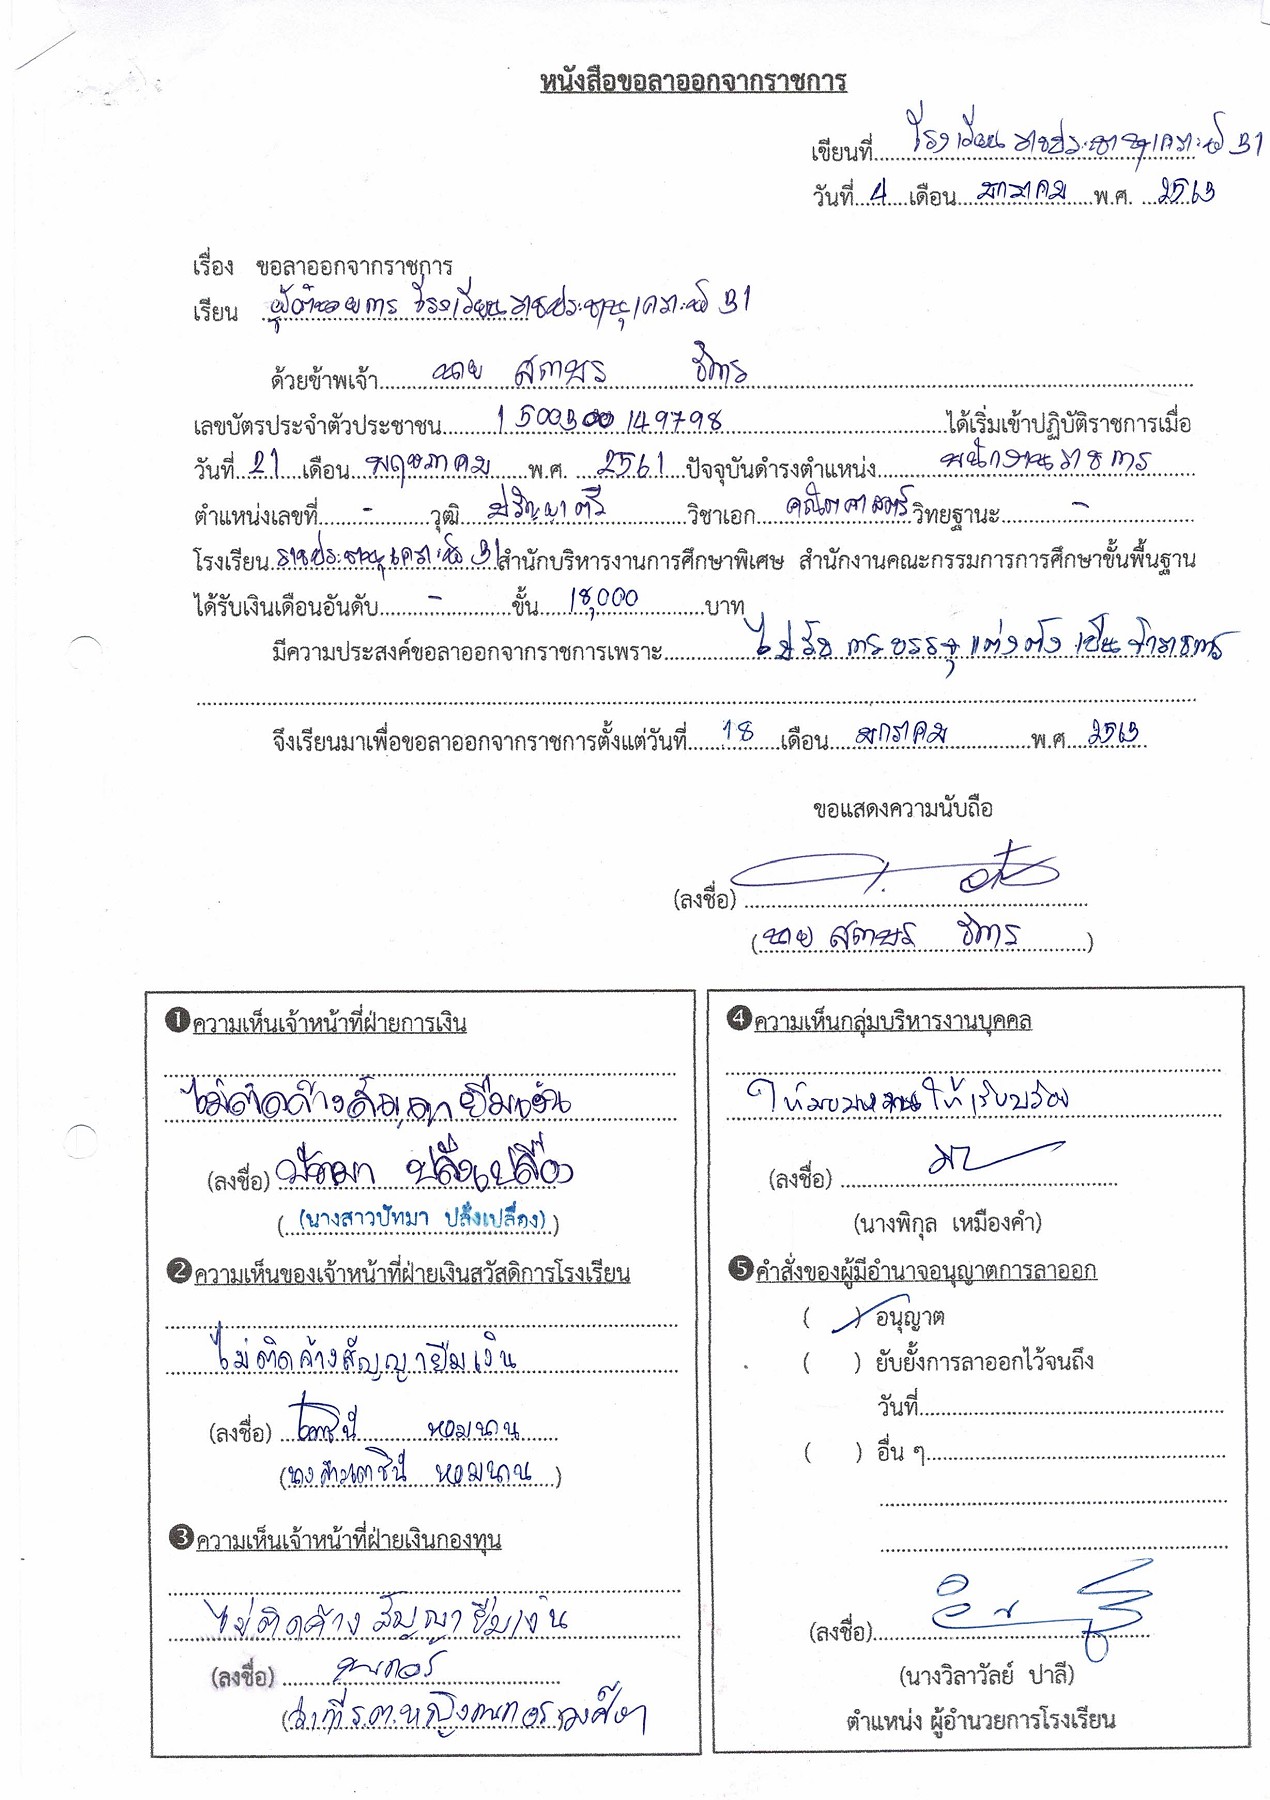 หนังสือขอลาออกจากราชการ
เขียนที่ โรงเรียนราชประชานุเคราะห์ 31
วันที่ 4 เดือน มกราคม พ.ศ. 2563
เรื่อง ขอลาออกจากราชการ
เรียน ผู้อำนวยการ โรงเรียนราชประชานุเคราะห์ 31
ด้วยข้าพเจ้า นาย
เลขบัตรประจำตัวประชาชน 1 500300 149798 ได้เริ่มเข้าปฏิบัติราชการเมื่อ
วันที่ 21 เดือน พฤษภาคม พ.ศ. 2561 ปัจจุบันดำรงตำแหน่ง พนักงานราชการ
ตำแหน่งเลขที่ - วุฒิ ปริญญาตรี วิชาเอก คณิตศาสตร์ วิทยฐานะ -
โรงเรียน ราชประชานุเคราะห์ 31 สำนักบริหารงานการศึกษาพิเศษ สำนักงานคณะกรรมการการศึกษาขั้นพื้นฐาน
ได้รับเงินเดือนอันดับ - ขั้น 18,000 บาท
มีความประสงค์ขอลาออกจากราชการเพราะ ไปรับการบรรจุแต่งตั้งเป็นข้าราชการ
จึงเรียนมาเพื่อขอลาออกจากราชการตั้งแต่วันที่ 18 เดือน มกราคม พ.ศ. 2563
ขอแสดงความนับถือ
(ลงชื่อ)
(นาย )
❶ ความเห็นเจ้าหน้าที่ฝ่ายการเงิน
ไม่ติดค้างสัญญายืมเงิน
(ลงชื่อ) ปัทมา ปลั่งเปลื่อง
(นางสาวปัทมา ปลั่งเปลื่อง)
❷ ความเห็นของเจ้าหน้าที่ฝ่ายเงินสวัสดิการโรงเรียน
ไม่ติดค้างสัญญายืมเงิน
(ลงชื่อ) เตชินี หอมนาน
(นางสาวเตชินี หอมนาน)
❸ ความเห็นเจ้าหน้าที่ฝ่ายเงินกองทุน
ไม่ติดค้างสัญญายืมเงิน
(ลงชื่อ)
(ว่าที่ร.ต.หญิง )
❹ ความเห็นกลุ่มบริหารงานบุคคล
ให้มอบหมายงานให้เรียบร้อย
(ลงชื่อ)
(นางพิกุล เหมืองคำ)
❺ คำสั่งของผู้มีอำนาจอนุญาตการลาออก
( / ) อนุญาต
( ) ยับยั้งการลาออกไว้จนถึง
วันที่
( ) อื่น ๆ
(ลงชื่อ)
(นางวิลาวัลย์ ปาลี)
ตำแหน่ง ผู้อำนวยการโรงเรียน